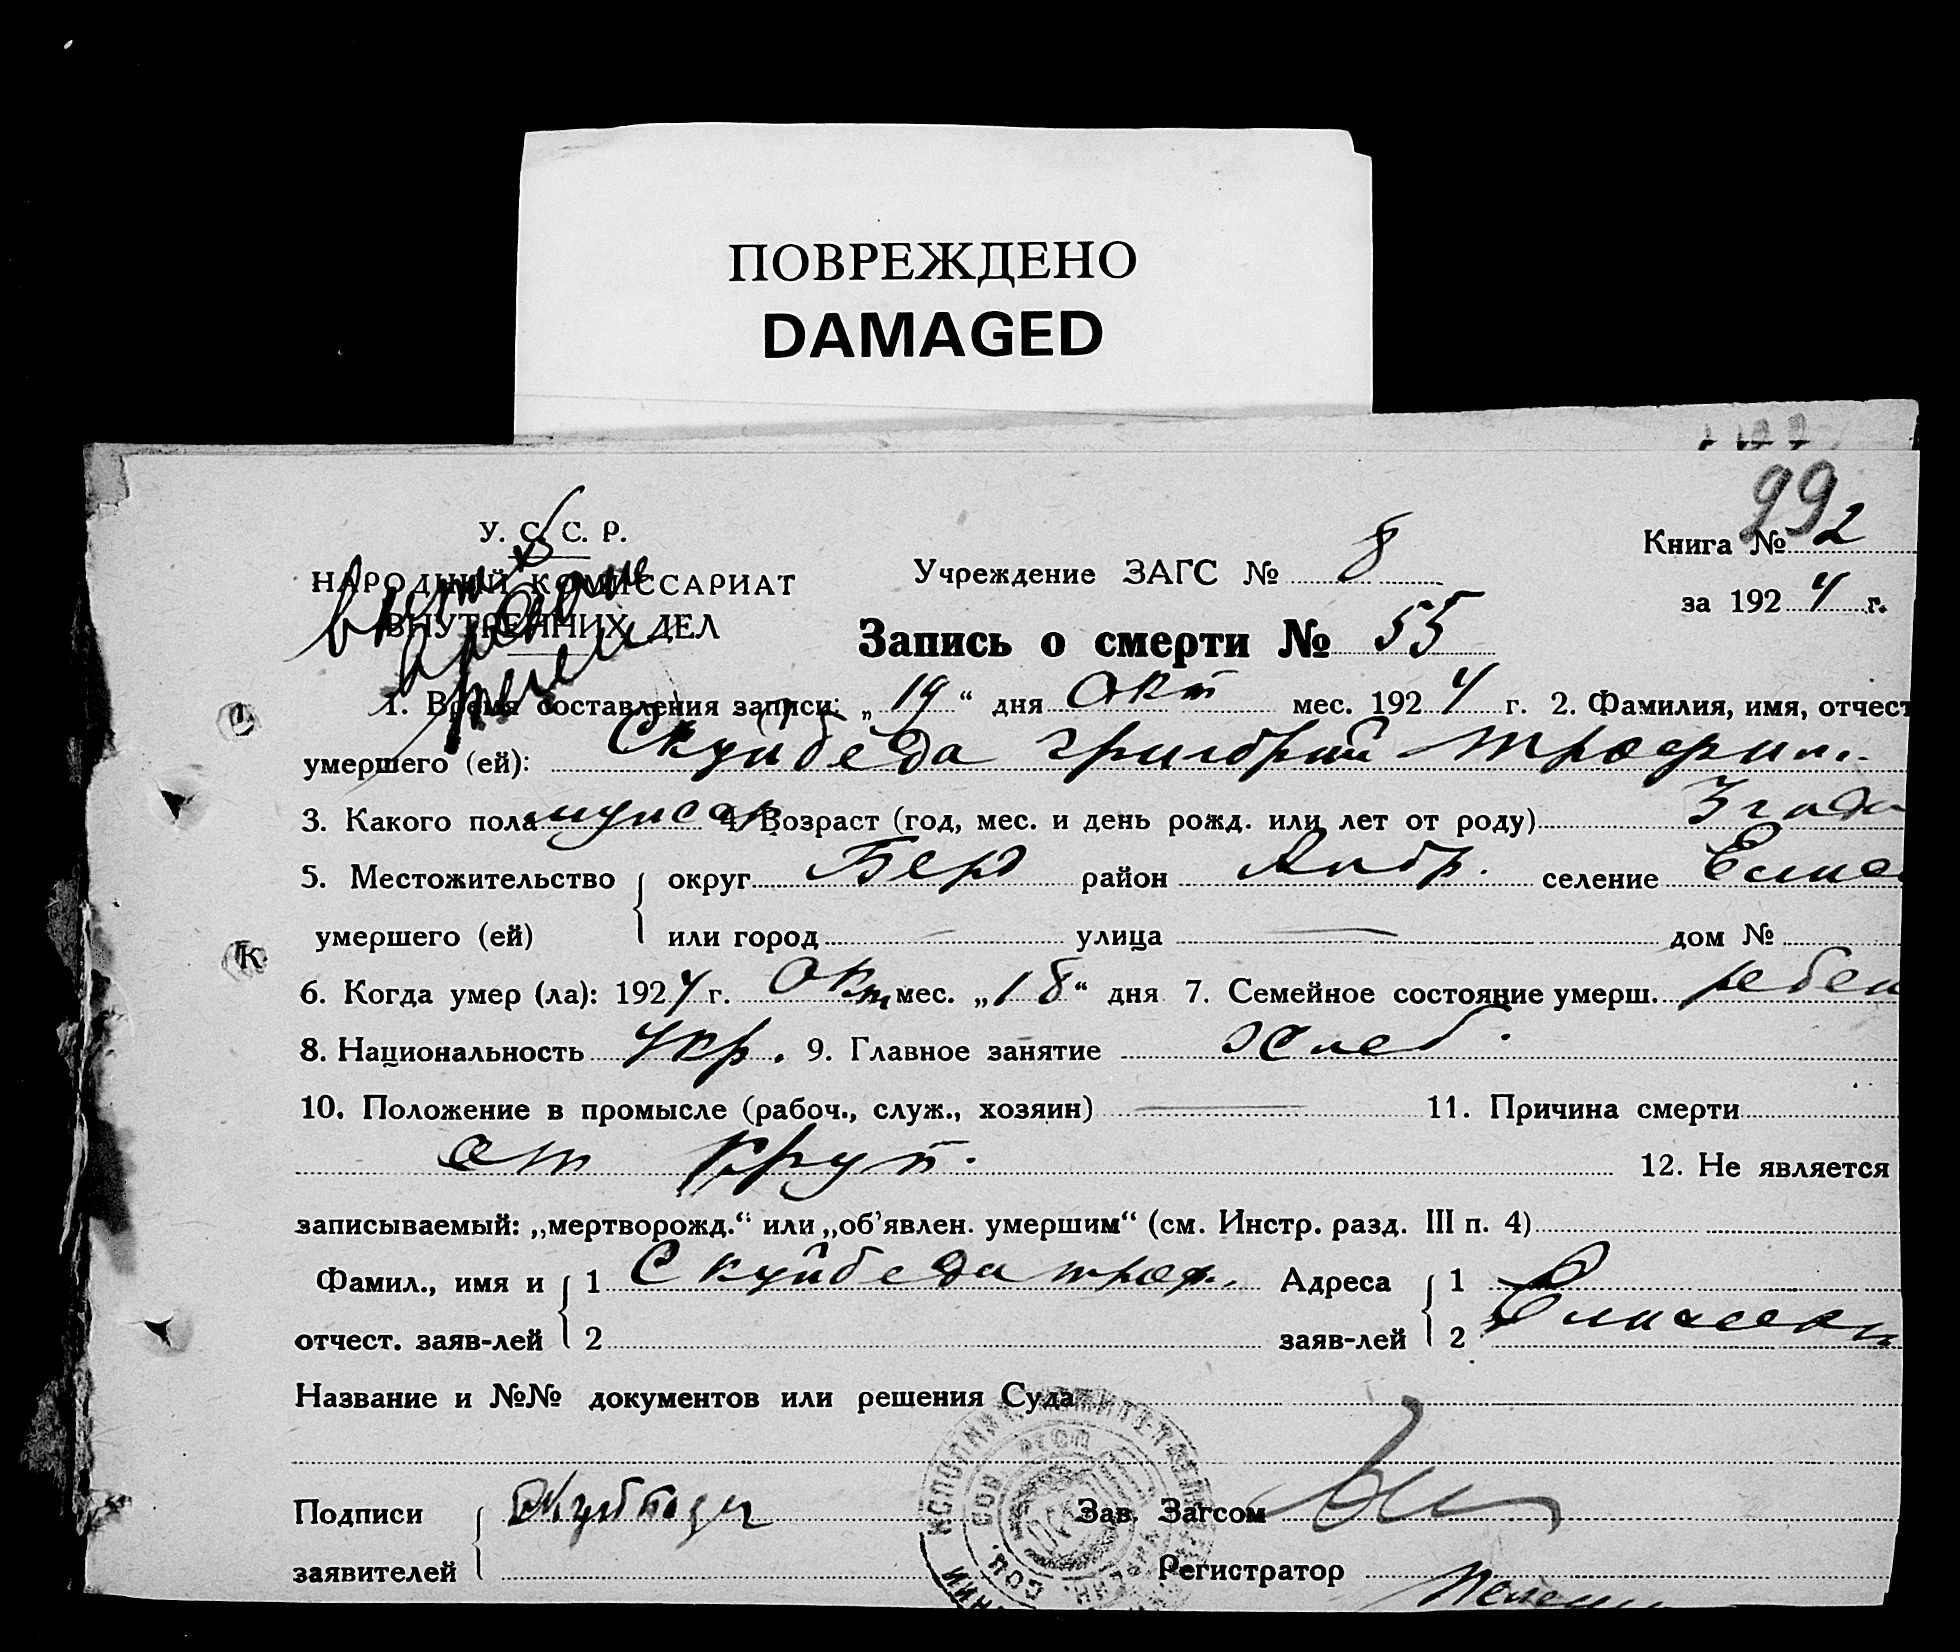 ПОВРЕЖДЕНО
DAMAGED
992
У. С. С. Р.
НАРОДНЫЙ КОМИССАРИАТ
ВНУТРЕННИХ ДЕЛ
Учреждение ЗАГС № 8
Книга № 2
за 1924 г.
Запись о смерти № 55
1. Время составления записи: „19“ дня Окт мес. 1924 г. 2. Фамилия, имя, отчест
умершего (ей): Скуйбеда Григорий Трофим.
3. Какого пола мужск 4. Возраст (год, мес. и день рожд. или лет от роду) 3 года
5. Местожительство округ Берд район Андр. селение
умершего (ей) или город — улица — дом №
6. Когда умер (ла): 1924 г. Окт мес. „18“ дня 7. Семейное состояние умерш. ребен
8. Национальность Укр. 9. Главное занятие хлеб.
10. Положение в промысле (рабоч., служ., хозяин) — 11. Причина смерти
от круп. 12. Не является
записываемый: „мертворожд.“ или „об’явлен. умершим“ (см. Инстр. разд. III п. 4)
Фамил., имя и 1 Скуйбеда Троф. Адреса 1
отчест. заяв-лей 2 заяв-лей 2
Название и №№ документов или решения Суда
Подписи Скуйбеда Зав. Загсом
заявителей Регистратор